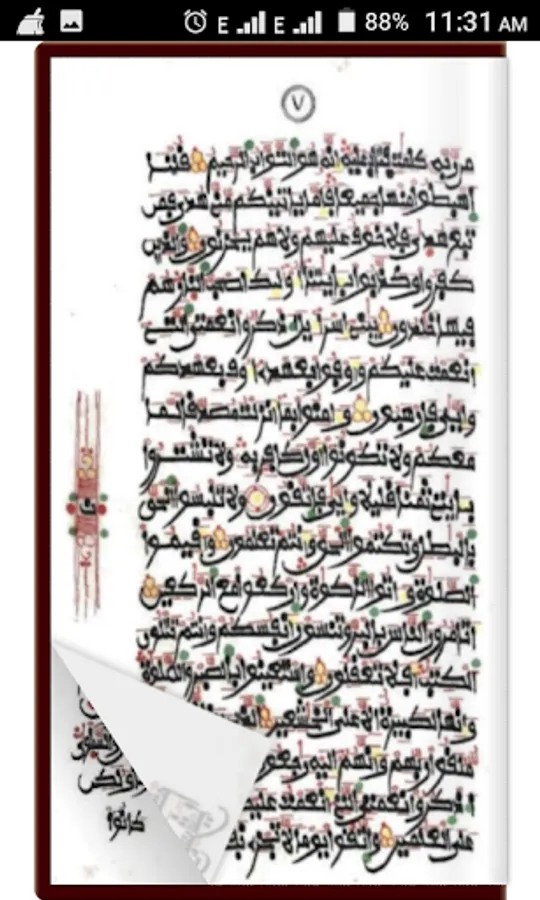 11:31 AM
88%
E E
٧
من ربه كلمت فتاب عليه انه هو التواب الرحيم قلنا
اهبطوا منها جميعا فاما ياتينكم مني هدى فمن
تبع هداي فلا خوف عليهم ولا هم يحزنون والذين
كفروا وكذبوا بايتنا اوليك اصحب النار هم
فيها خلدون يبني اسراءيل اذكروا نعمتي التي
انعمت عليكم واوفوا بعهدي اوف بعهدكم
وايي فارهبون وامنوا بما انزلت مصدقا لما
معكم ولا تكونوا اول كافر به ولا تشتروا
بايتي ثمنا قليلا وايي فاتقون ولا تلبسوا الحق
بالبطل وتكتموا الحق وانتم تعلمون واقيموا
الصلوة واتوا الزكوة واركعوا مع الركعين
اتامرون الناس بالبر وتنسون انفسكم وانتم تتلون
الكتب افلا تعقلون واستعينوا بالصبر والصلوة
وانها لكبيرة الا على الخشعين
ملقوا ربهم وانهم اليه رجعون
اذكروا نعمتي التي انعمت
على العلمين واتقوا يوما لا تجزي
كانوا